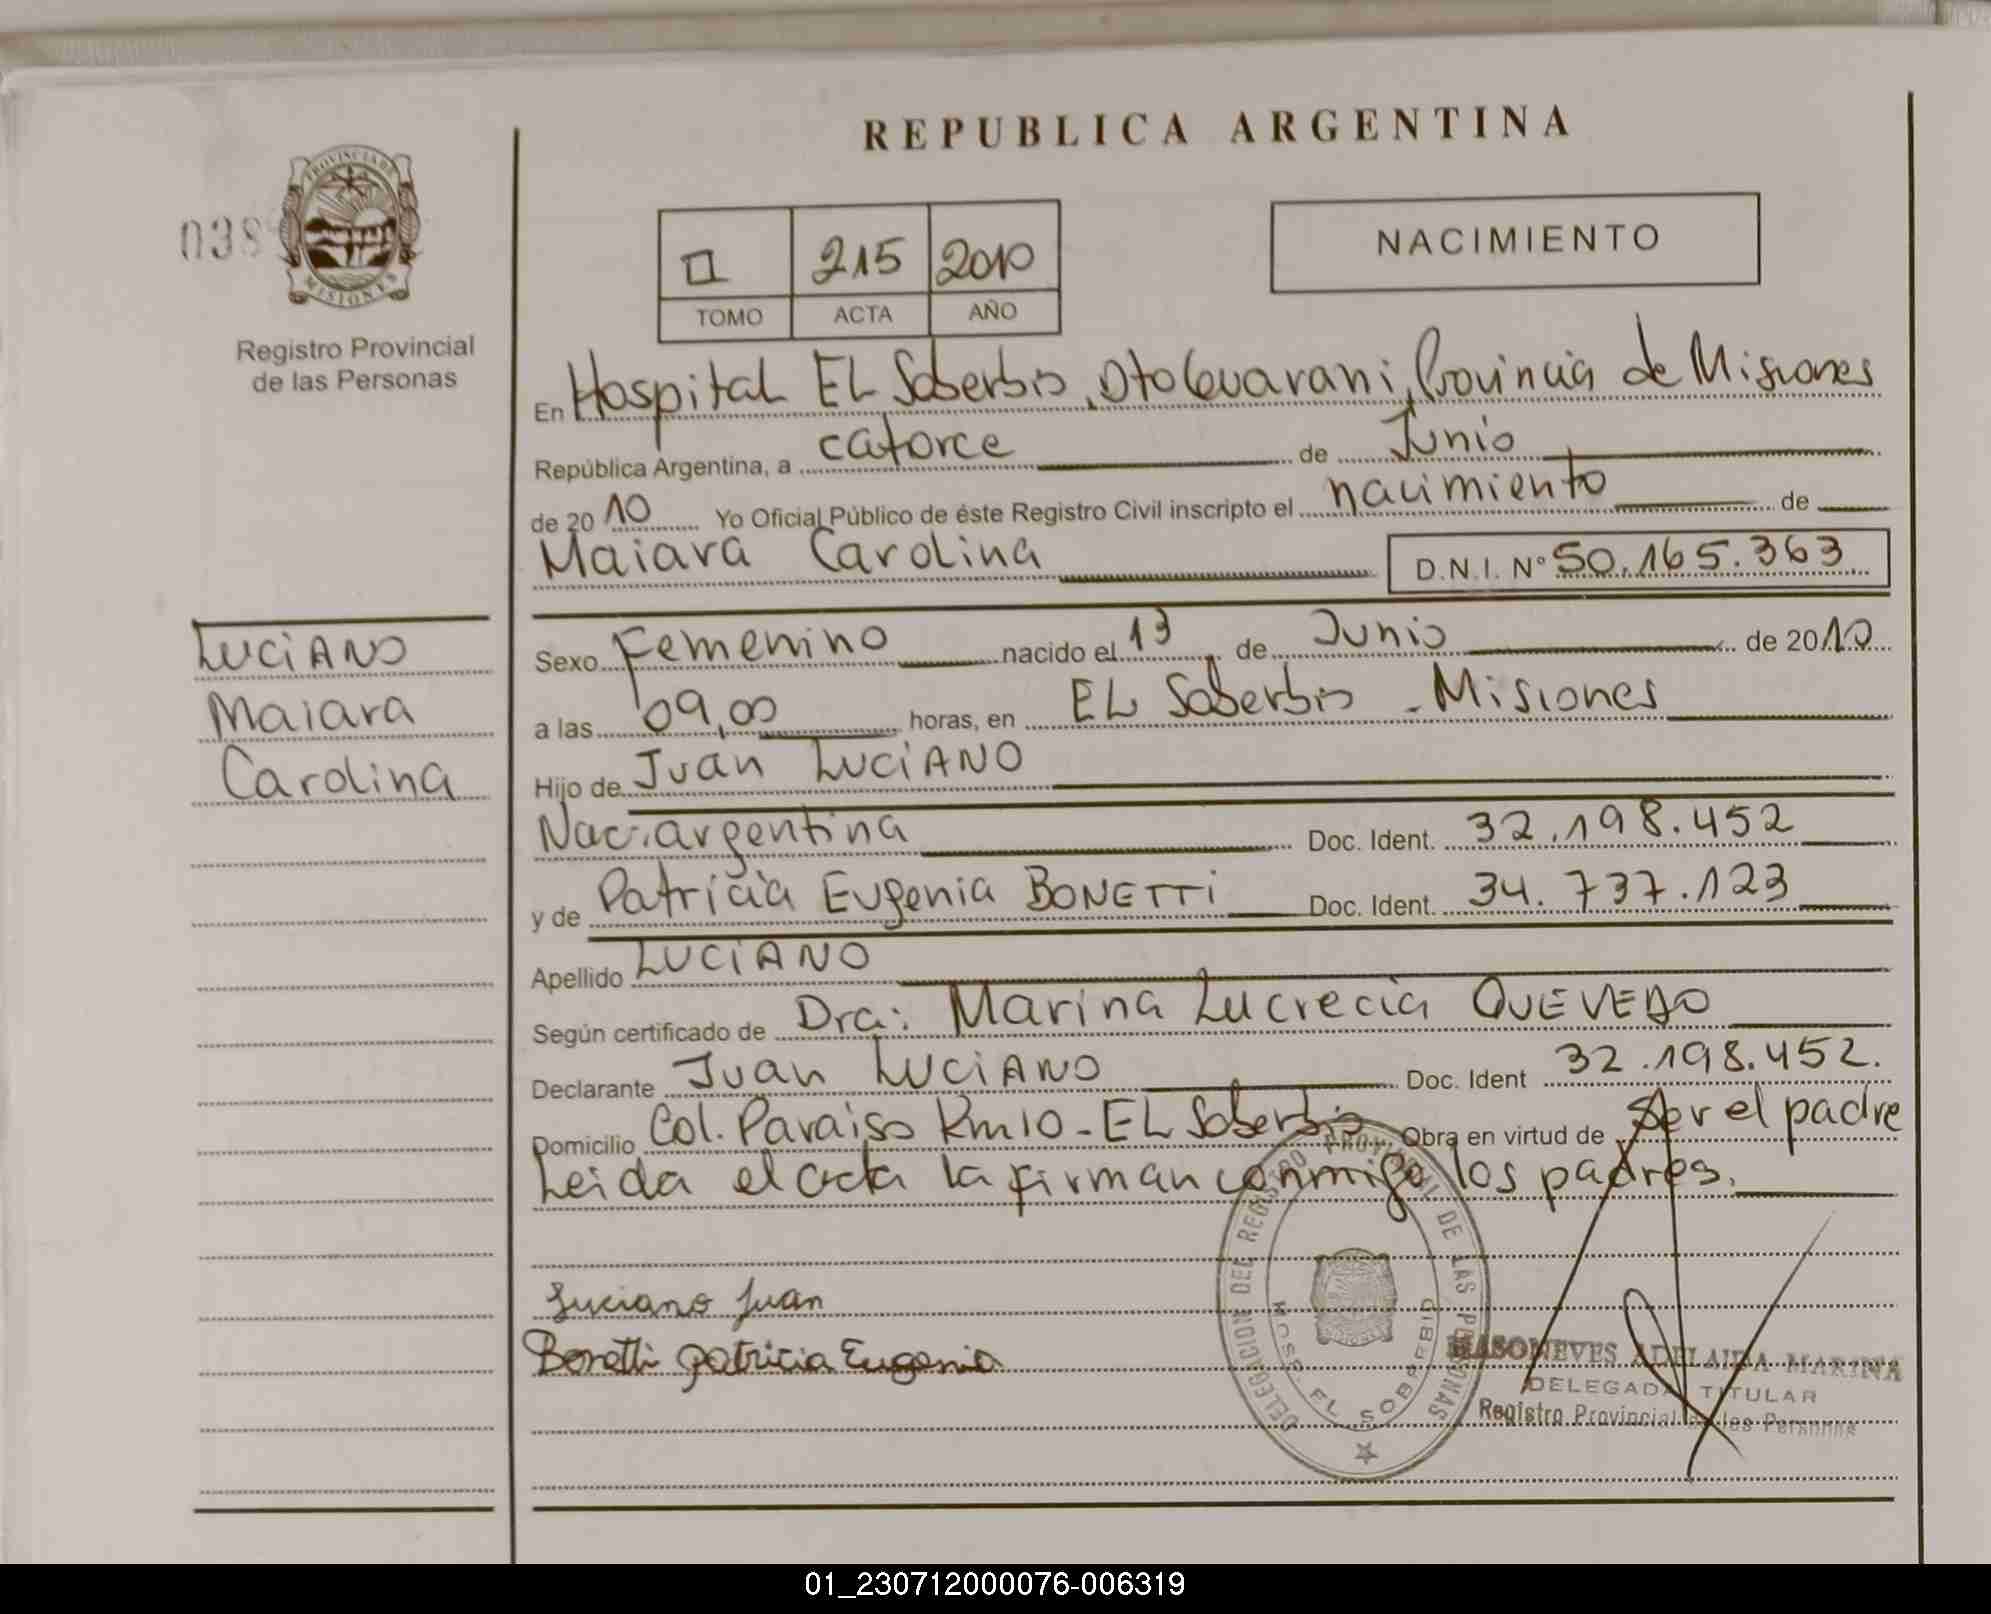 REPUBLICA ARGENTINA
038
PROVINCIA DE
MISIONES
Registro Provincial
de las Personas
215 2010
TOMO ACTA AÑO
NACIMIENTO
En Hospital EL Soberbio, Dto Guarani, Provincia de Misiones
República Argentina, a catorce de Junio
de 2010 Yo Oficial Público de éste Registro Civil inscripto el nacimiento de
Maiara Carolina D.N.I. Nº 50.165.363
LUCIANO
Maiara
Carolina
Sexo Femenino nacido el 13 de Junio de 2010
a las 09,00 horas, en EL Soberbio - Misiones
Hijo de Juan LUCIANO
Nac. argentina Doc. Ident. 32.198.452
y de Patricia Eugenia BONETTI Doc. Ident. 34.737.123
Apellido LUCIANO
Según certificado de Dra: Marina Lucrecia QUEVEDO
Declarante Juan LUCIANO Doc. Ident 32.198.452.
Domicilio Col. Paraiso Km10 - EL Soberbio Obra en virtud de Ser el padre
Leida el acta la firman conmigo los padres.
Luciano Juan
Bonetti patricia Eugenia
DELEGACION DEL REGISTRO PROVINCIAL DE LAS PERSONAS
HOSP. EL SOBERBIO
MASONEVES ADELAIDA MARINA
DELEGADA TITULAR
Registro Provincial de las Personas
01_230712000076-006319